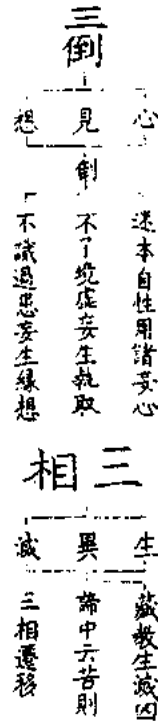 三倒
心 見 想
倒
迷本自性用諸妄心
不了境虛妄生執取
不識過患妄生緣想
三相
生 異 滅
藏教生滅四
諦中云苦則
三相遷移